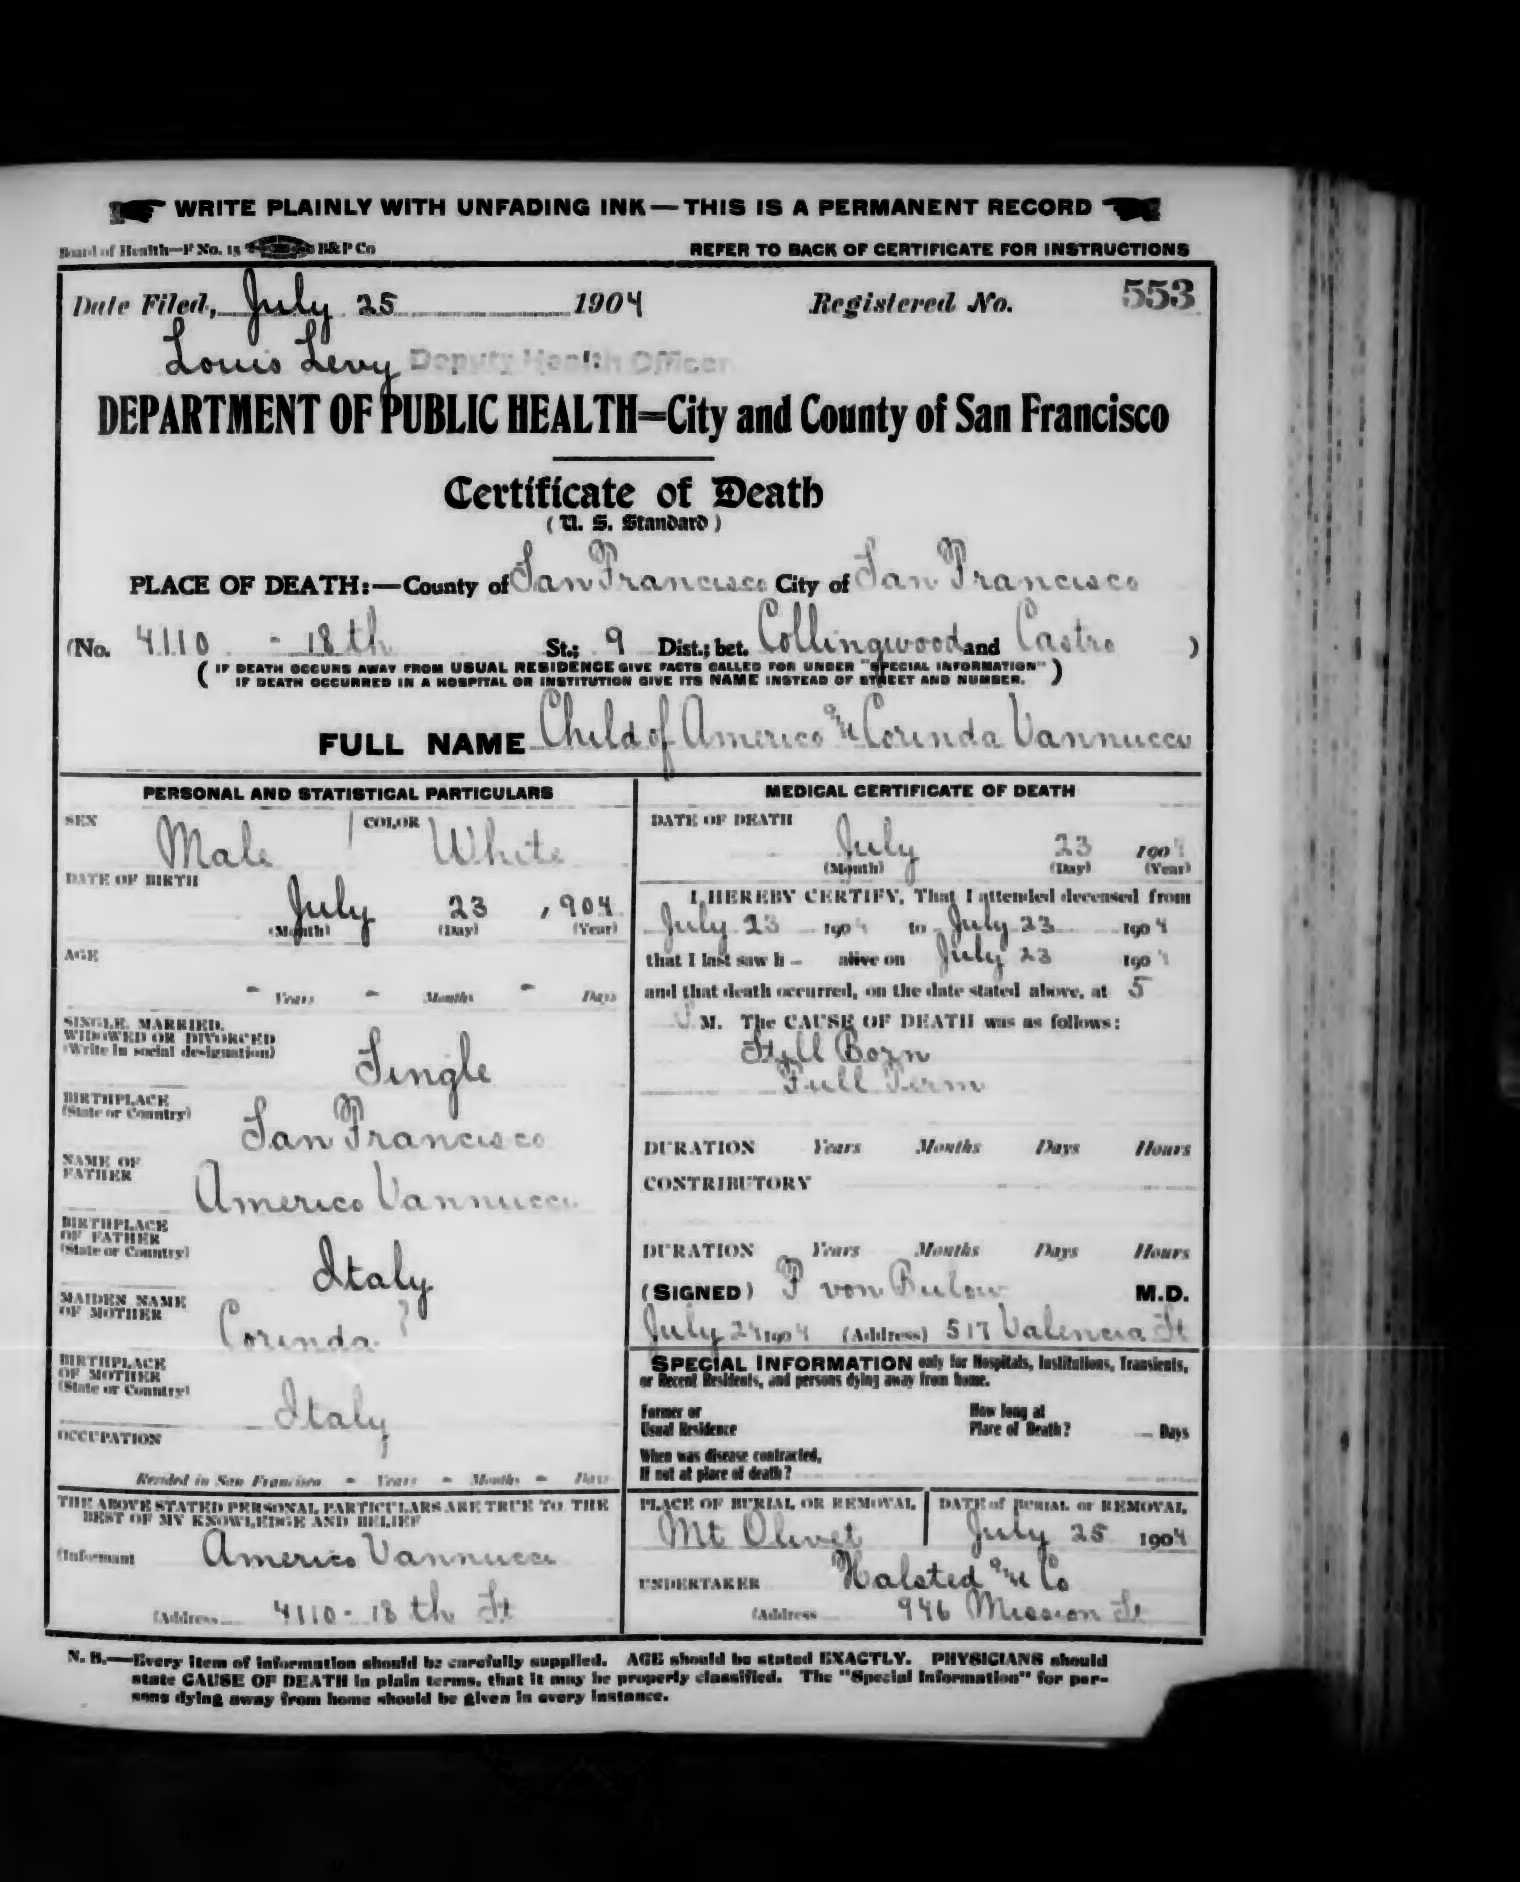 WRITE PLAINLY WITH UNFADING INK—THIS IS A PERMANENT RECORD
Board of Health—F No. 15 B&P Co REFER TO BACK OF CERTIFICATE FOR INSTRUCTIONS
Date Filed, July 25 1904 Registered No. 553
Louis Levy Deputy Health Officer
DEPARTMENT OF PUBLIC HEALTH=City and County of San Francisco
Certificate of Death
(U. S. Standard)
PLACE OF DEATH:—County of San Francisco City of San Francisco
(No. 4110 - 18th St.; 9 Dist.; bet. Collingwood and Castro )
( IF DEATH OCCURS AWAY FROM USUAL RESIDENCE GIVE FACTS CALLED FOR UNDER "SPECIAL INFORMATION" )
IF DEATH OCCURRED IN A HOSPITAL OR INSTITUTION GIVE ITS NAME INSTEAD OF STREET AND NUMBER.
FULL NAME Child of Americo and Corinda Vannucci
PERSONAL AND STATISTICAL PARTICULARS
SEX Male COLOR White
DATE OF BIRTH
July 23 , 904
(Month) (Day) (Year)
AGE
- Years - Months - Days
SINGLE, MARRIED,
WIDOWED OR DIVORCED
(Write in social designation)
Single
BIRTHPLACE
(State or Country)
San Francisco
NAME OF
FATHER
Americo Vannucci
BIRTHPLACE
OF FATHER
(State or Country)
Italy
MAIDEN NAME
OF MOTHER
Corinda ?
BIRTHPLACE
OF MOTHER
(State or Country)
Italy
OCCUPATION
Resided in San Francisco - Years - Months - Days
THE ABOVE STATED PERSONAL PARTICULARS ARE TRUE TO THE
BEST OF MY KNOWLEDGE AND BELIEF
(Informant Americo Vannucci
(Address 4110 - 18th St
MEDICAL CERTIFICATE OF DEATH
DATE OF DEATH
July 23 1904
(Month) (Day) (Year)
I HEREBY CERTIFY, That I attended deceased from
July 23 1904 to July 23 1904
that I last saw h - alive on July 23 1904
and that death occurred, on the date stated above, at 5
P M. The CAUSE OF DEATH was as follows:
Still Born
Full Term
DURATION Years Months Days Hours
CONTRIBUTORY
DURATION Years Months Days Hours
(SIGNED) P von Bulow M.D.
July 24 1904 (Address) 517 Valencia St
SPECIAL INFORMATION only for Hospitals, Institutions, Transients,
or Recent Residents, and persons dying away from home.
Former or
Usual Residence
How long at
Place of Death? Days
When was disease contracted,
If not at place of death?
PLACE OF BURIAL OR REMOVAL
Mt Olivet
DATE of BURIAL or REMOVAL
July 25 1904
UNDERTAKER Halsted and Co
(Address 946 Mission St
N. B.—Every item of information should be carefully supplied. AGE should be stated EXACTLY. PHYSICIANS should
state CAUSE OF DEATH in plain terms, that it may be properly classified. The "Special Information" for per-
sons dying away from home should be given in every instance.